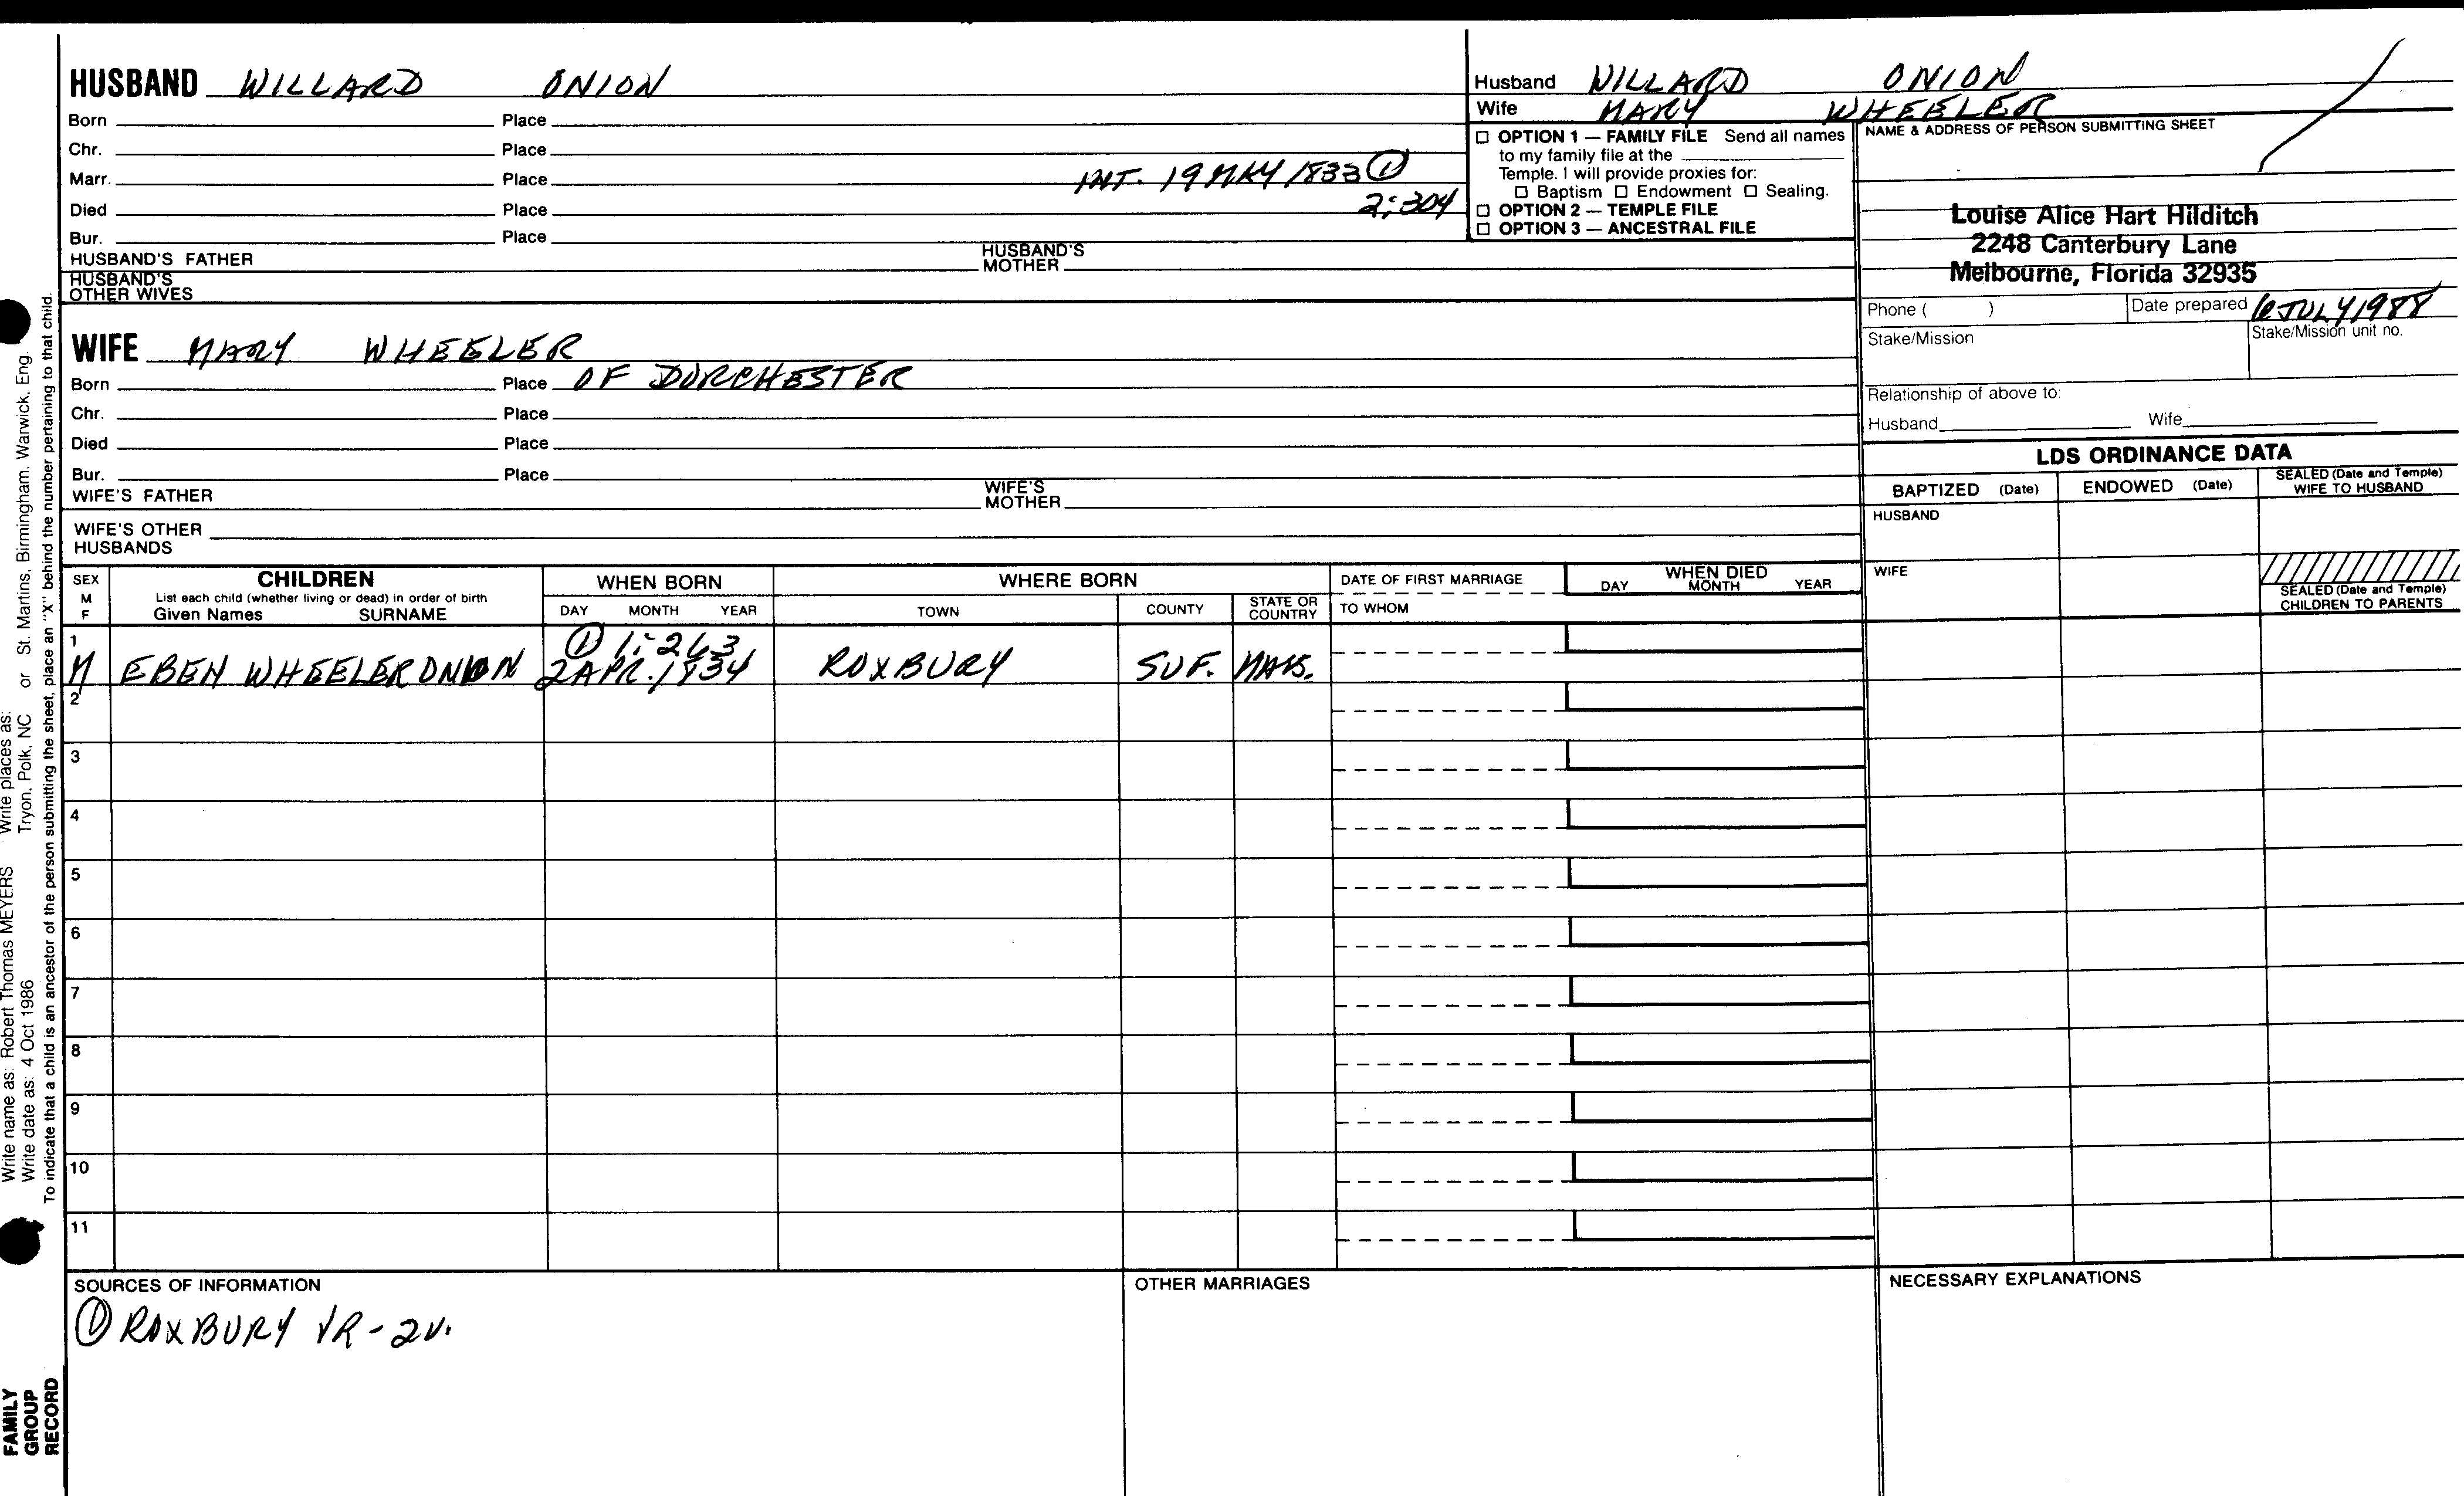 HUSBAND WILLARD ONION
Born Place
Chr. Place
Marr. Place INT. 19 MAY 1833 ①
Died Place 2:304
Bur. Place
HUSBAND'S FATHER HUSBAND'S MOTHER
HUSBAND'S OTHER WIVES
Husband WILLARD ONION
Wife MARY WHEELER
☐ OPTION 1 — FAMILY FILE Send all names
to my family file at the
Temple. I will provide proxies for:
☐ Baptism ☐ Endowment ☐ Sealing.
☐ OPTION 2 — TEMPLE FILE
☐ OPTION 3 — ANCESTRAL FILE
NAME & ADDRESS OF PERSON SUBMITTING SHEET
Louise Alice Hart Hilditch
2248 Canterbury Lane
Melbourne, Florida 32935
Phone ( ) Date prepared 6 JULY 1988
Stake/Mission Stake/Mission unit no.
Relationship of above to:
Husband Wife
WIFE MARY WHEELER
Born Place OF DORCHESTER
Chr. Place
Died Place
Bur. Place
WIFE'S FATHER WIFE'S MOTHER
WIFE'S OTHER HUSBANDS
LDS ORDINANCE DATA
BAPTIZED (Date) ENDOWED (Date) SEALED (Date and Temple) WIFE TO HUSBAND
HUSBAND
WIFE
SEALED (Date and Temple) CHILDREN TO PARENTS
SEX M F
CHILDREN
List each child (whether living or dead) in order of birth
Given Names SURNAME
WHEN BORN
DAY MONTH YEAR
WHERE BORN
TOWN COUNTY STATE OR COUNTRY
DATE OF FIRST MARRIAGE
TO WHOM
WHEN DIED
DAY MONTH YEAR
1 ① 1:263
M EBEN WHEELER ONION 2 APR. 1834 ROXBURY SUF. MASS.
2
3
4
5
6
7
8
9
10
11
SOURCES OF INFORMATION
① ROXBURY VR-2V.
OTHER MARRIAGES
NECESSARY EXPLANATIONS
Write name as: Robert Thomas MEYERS Write places as:
Write date as: 4 Oct 1986 Tryon, Polk, NC or St. Martins, Birmingham, Warwick, Eng.
To indicate that a child is an ancestor of the person submitting the sheet, place an "X" behind the number pertaining to that child.
FAMILY
GROUP
RECORD